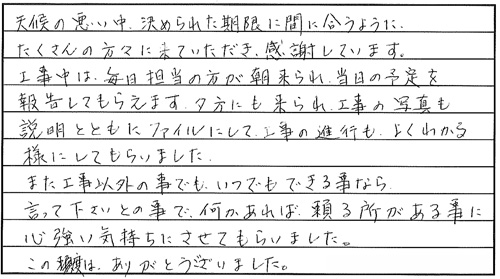 天候の悪い中、決められた期限に間に合うように、
たくさんの方々に来ていただき、感謝しています。
工事中は、毎日担当の方が朝来られ、当日の予定を
報告してもらえます。夕方にも来られ、工事の写真も
説明とともにファイルにして、工事の進行も、よくわかる
様にしてもらいました。
また工事以外の事でも、いつでもできる事なら
言って下さいとの事で、何かあれば、頼る所がある事に
心強い気持ちにさせてもらいました。
この度は、ありがとうございました。